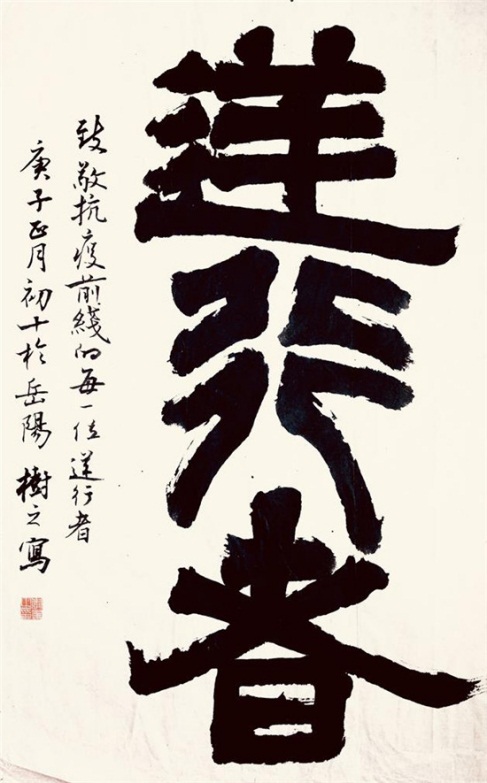 逆行者
致敬抗疫前綫的每一位逆行者
庚子正月初十於岳陽 樹之寫